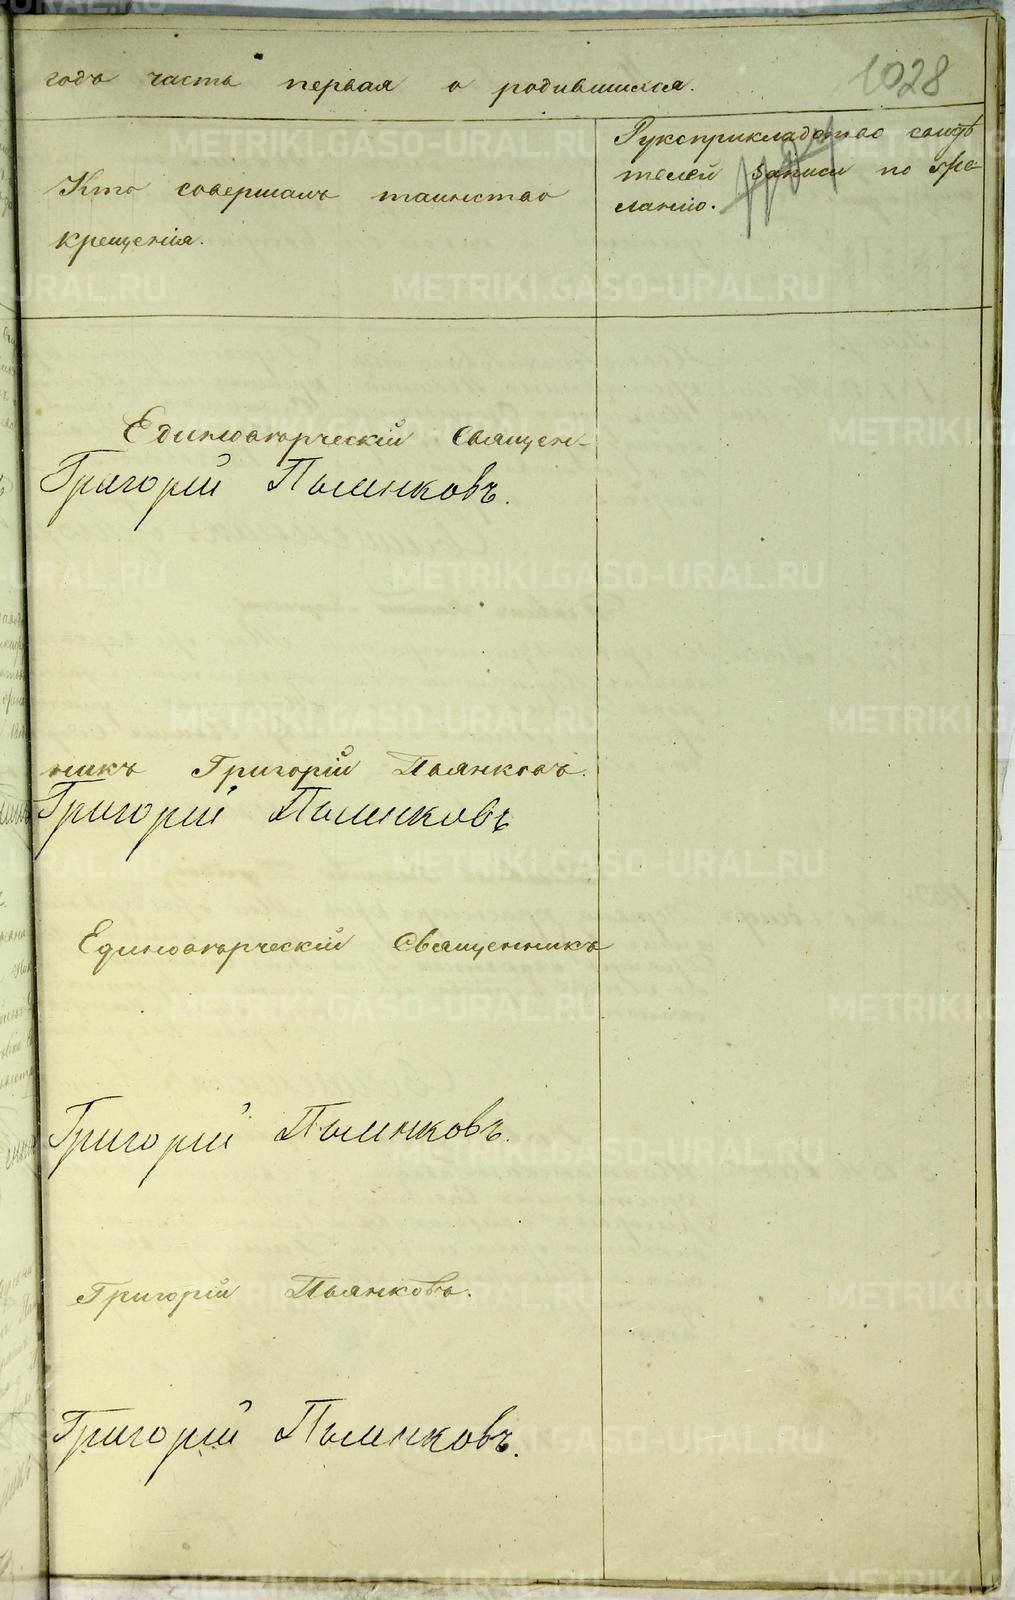 годъ часть первая о родившихся.
1028
Кто совершалъ таинство
крещенія.
Рукоприкладство свидѣ
телей записи по же-
ланію.
Единовѣрческій Священ-
Григорій Пьянковъ.
никъ Григорій Пьянковъ.
Григорій Пьянковъ
Единовѣрческій Священникъ
Григорій Пьянковъ.
Григорій Пьянковъ.
Григорій Пьянковъ.
METRIKI.GASO-URAL.RU